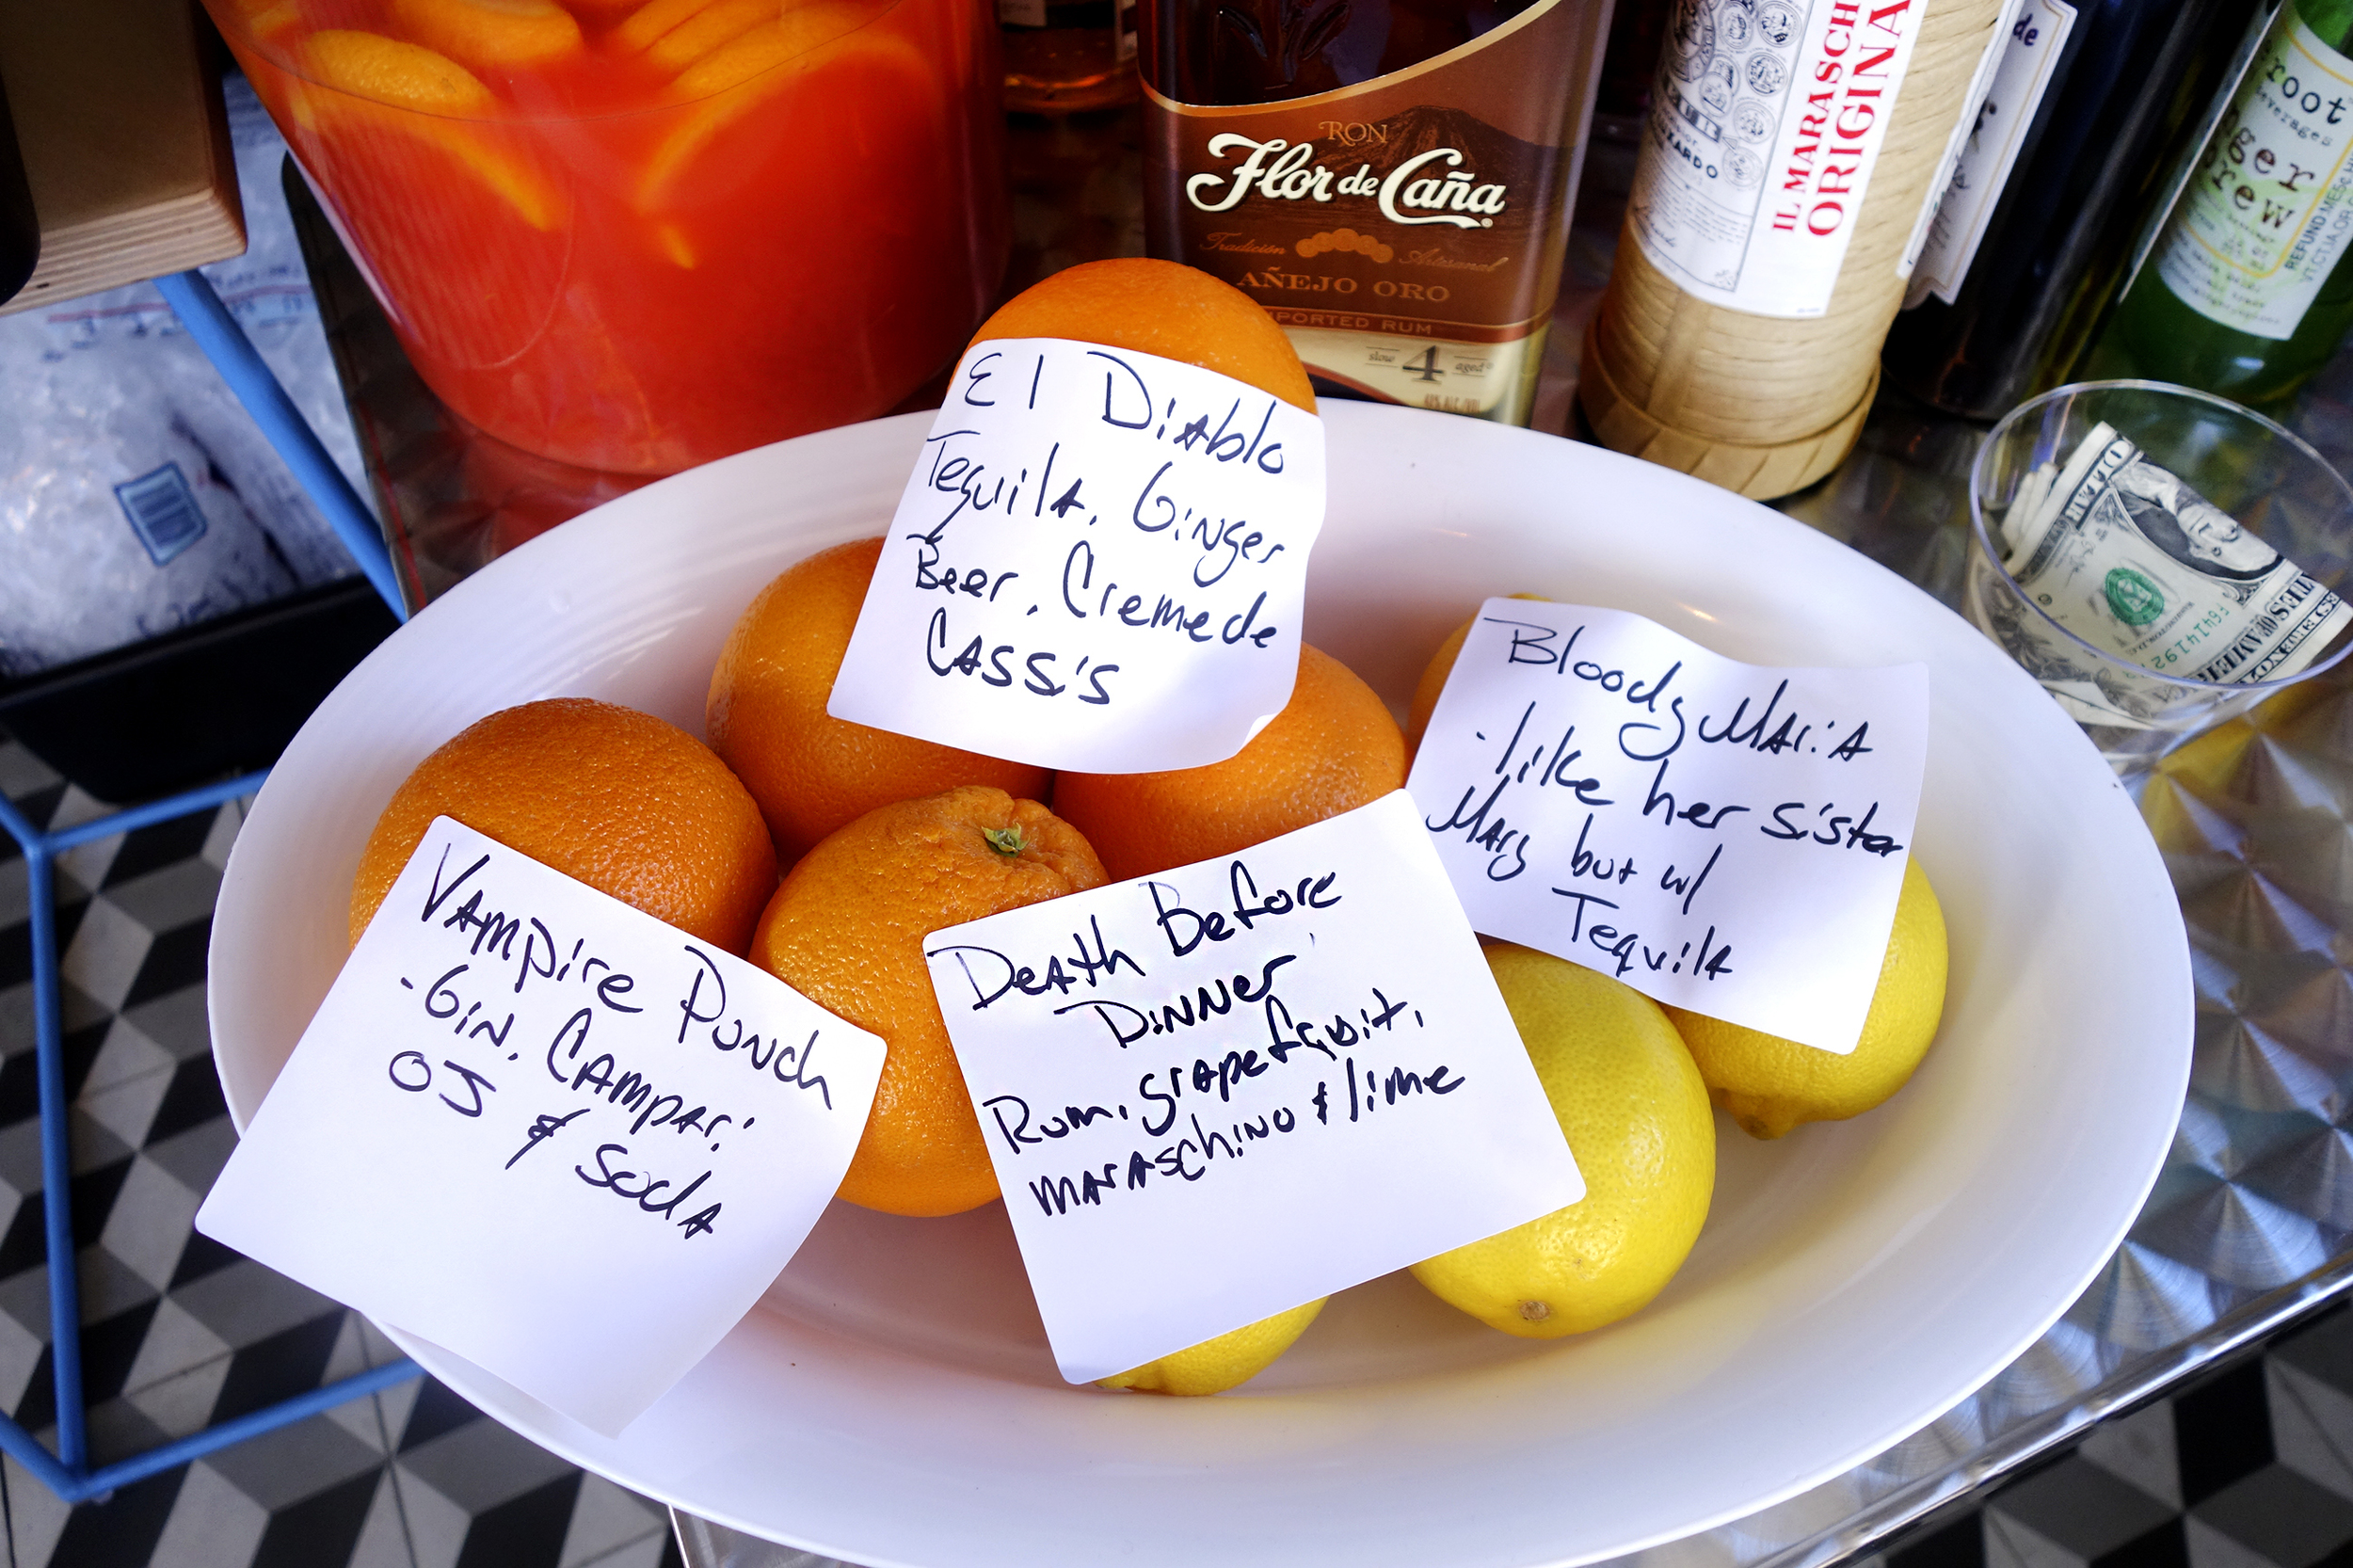 RON
Flor de Caña
Tradición Artesanal
AÑEJO ORO
IMPORTED RUM
slow 4 aged
IL MARASCH
ORIGINA
de
root
Beverages
ger
rew
El Diablo
Tequila, Ginger
Beer, Creme de
Cassis
Bloody Maria
-like her sister
Mary but w/
Tequila
Vampire Punch
-Gin, Campari
OJ & soda
Death Before
Dinner
Rum, grapefruit,
maraschino & lime